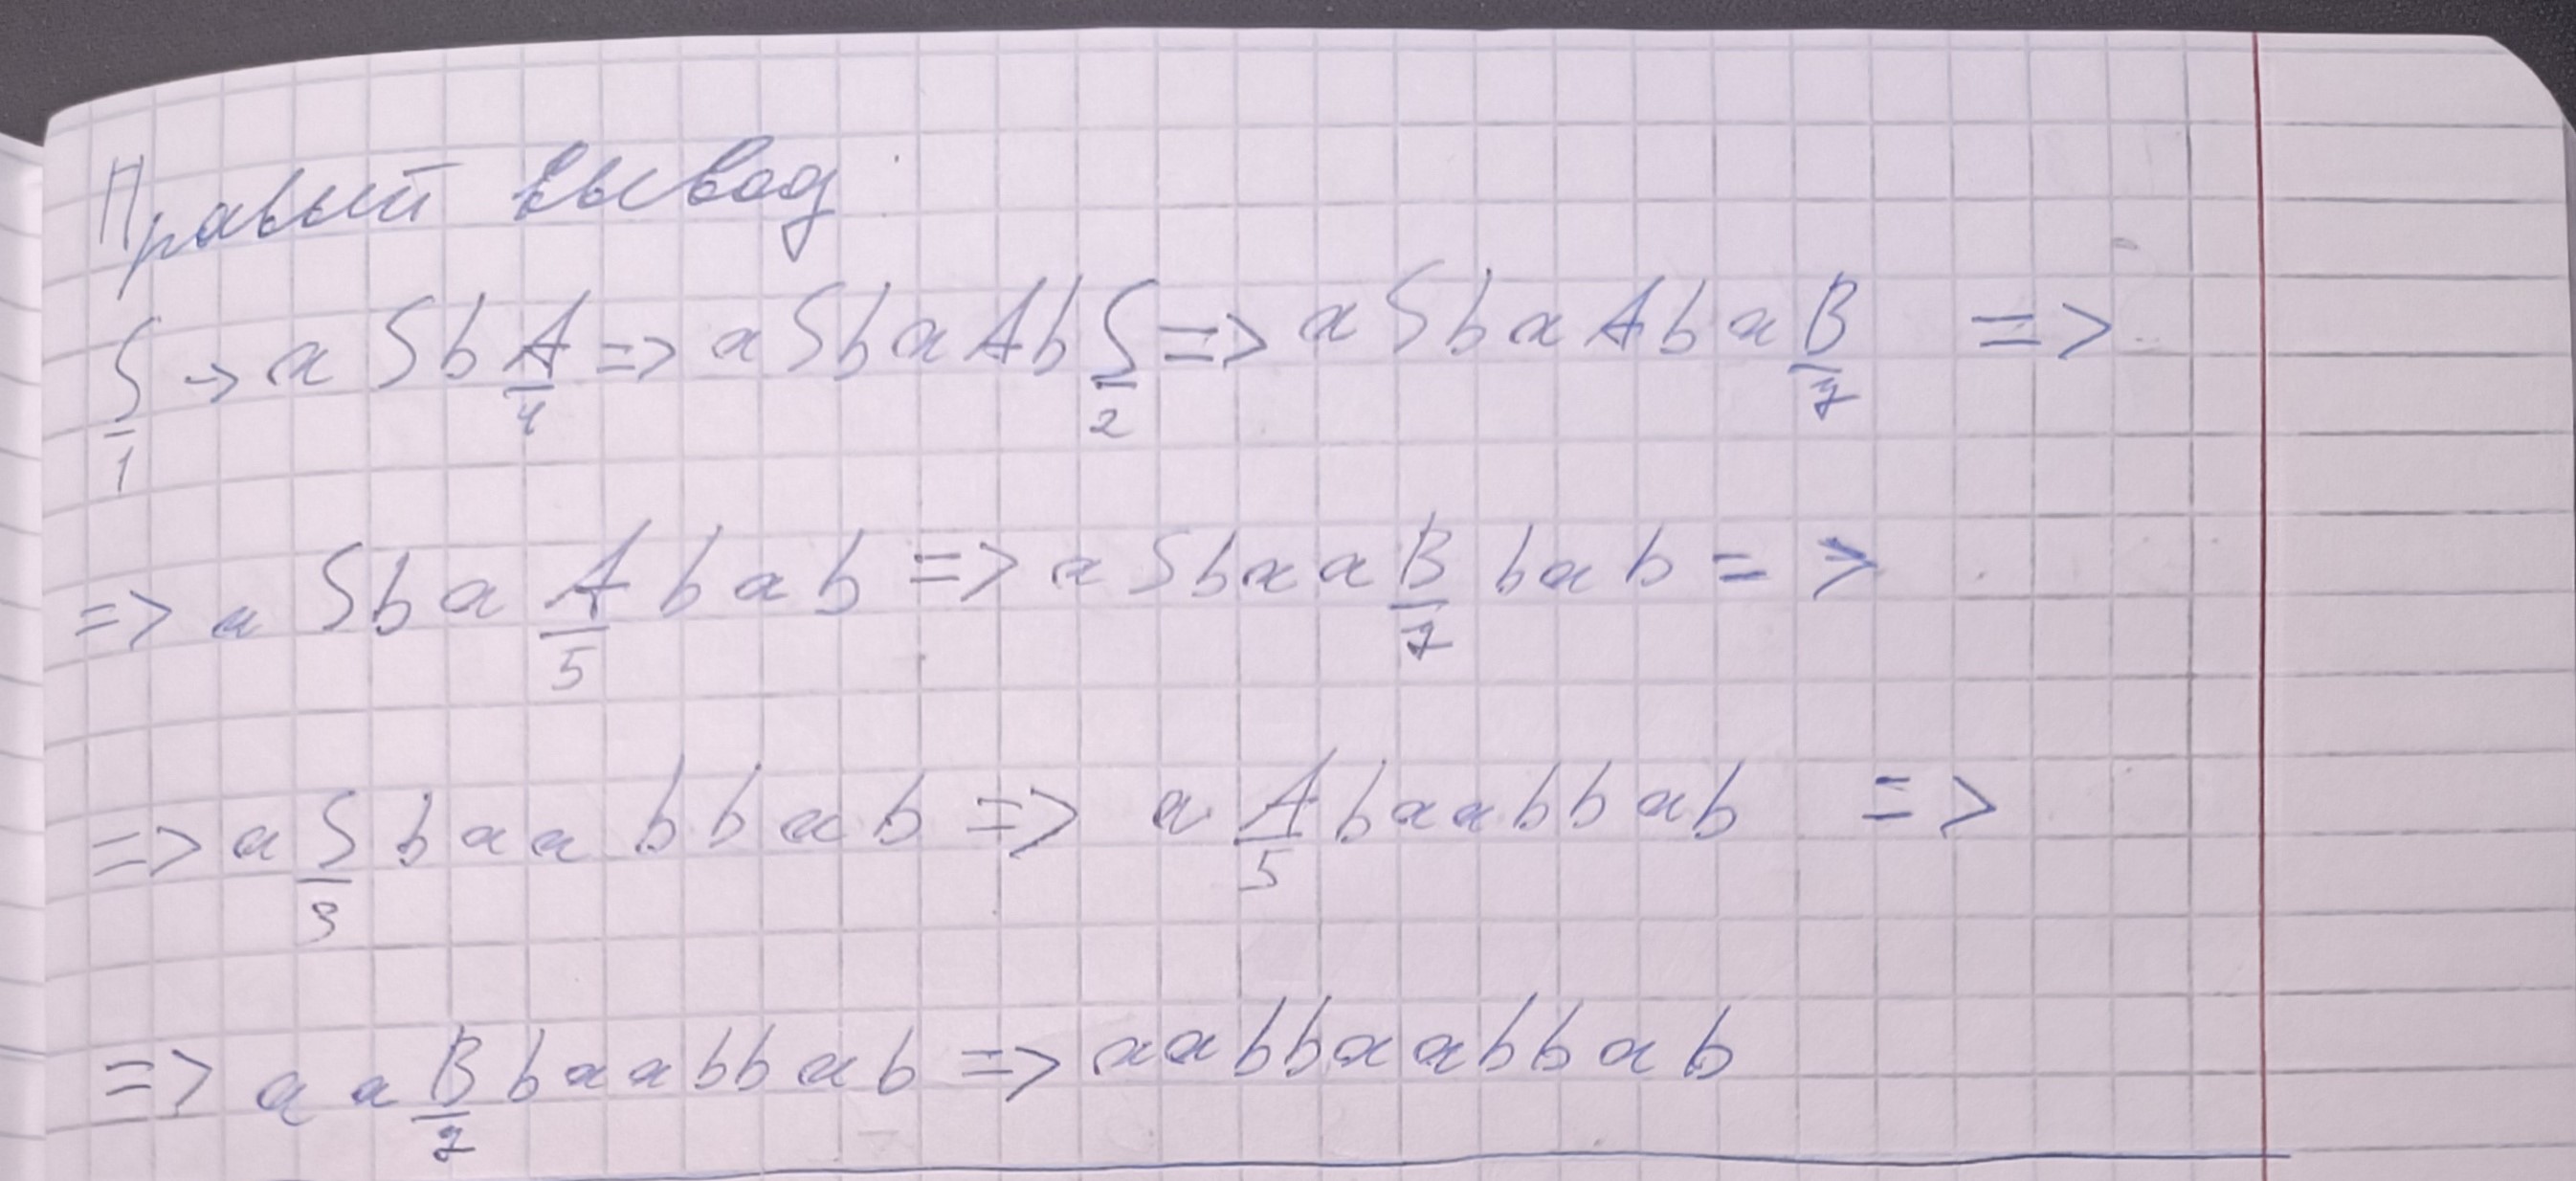 Правый вывод
S → a S b A => a S b a A b S => a S b a A b a B =>
1 4 2 7
=> a S b a A b a b => a S b a a B b a b = >
5 7
=> a S b a a b b a b => a A b a a b b a b =>
3 5
=> a a B b a a b b a b => a a b b a a b b a b
7